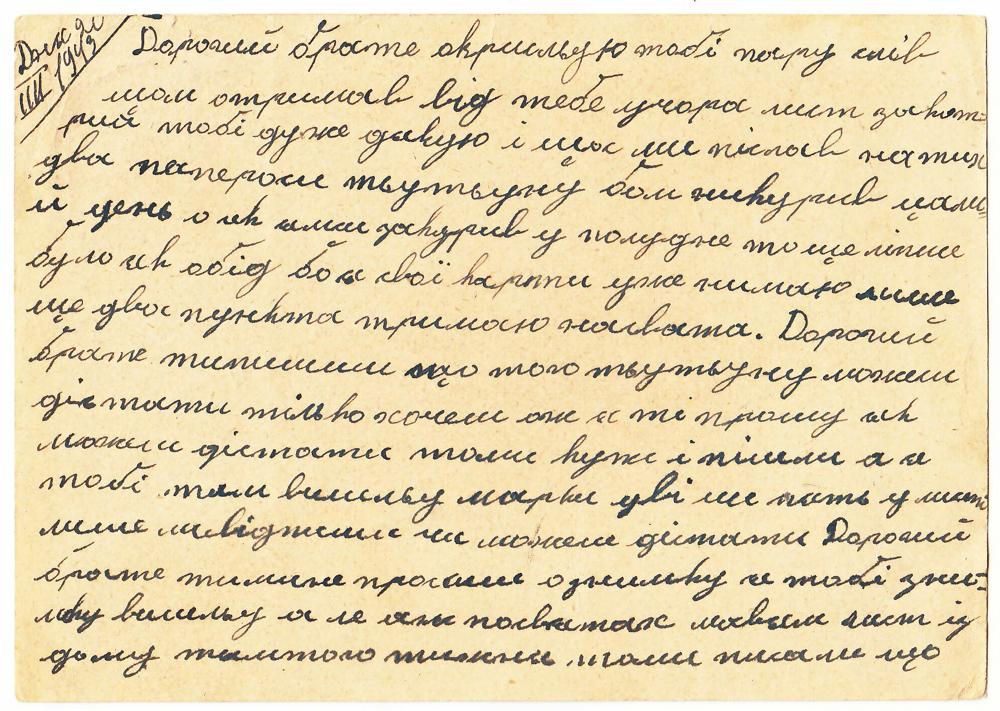 Дня 20
III 1943
Дорогий брате окрисльую тобі пару слів
шом отримав від тебе учора лист за кот-
рий тобі дуже дякую і щос ми післав на тих
два папероси тьутьуну бом никурив цали-
й день о як ими закурив у полудне то ще ліпше
було як обід бо я свої карти уже нимаю лише
ще два пункта тримаю насвята. Дорогий
брате типишиш що того тьутьуну можеш
дістати тілько хочеш ож я ті прошу як
можеш дістати томи купи і пішли а я
тобі там вишльу марки дві ци пать у листі
лише ми відпиши чи можеш дістати Дорогий
брате тимине просиш ознимку я тобі зни-
мку вишльу а ле аж посватах мавим лист із
дому тамтого тижня томи писали що